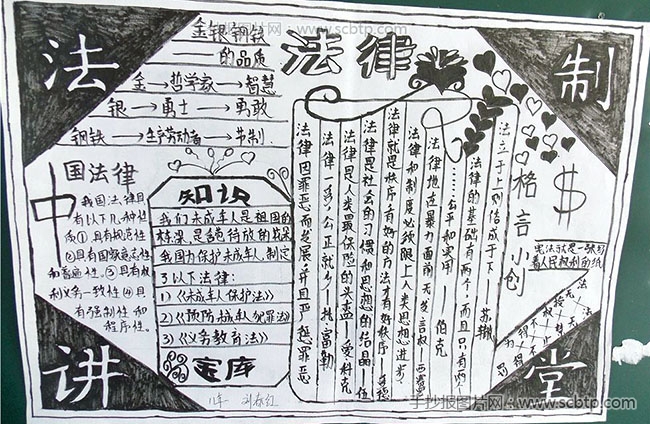 手抄报图片网 - www.scbtp.com
法
制
讲
堂
金银钢铁
的品质
金→哲学家→智慧
银→勇士→勇敢
钢铁→生产劳动者→节制
法律
中国法律
我国法律具
有以下几种性
质①具有规范性
②具有国家意志性
和普遍性③具有权
利义务一致性④具
有强制性和
程序性。
知识
我们未成年人是祖国的
栋梁,是含苞待放的
我国为保护未成年人,制定
了以下法律:
1)《未成年人保护法》
2)《预防未成年人犯罪法》
3)《义务教育法》
宝库
法立于上则俗成于下—苏辙
法律的基础有两个,而且只有两个
……公平和实用——伯克
法律绝迹暴力面前无发言权—西塞
法律和制度必须跟上人类思想进步
法律就是秩序,有好的方法才有好秩序
法律是社会的习惯和思想的结晶—
法律是人类最保险的头盔—爱科克
法律,多么公正就多
法律因罪恶而发展,并且严惩罪恶
格言小创
$
宪法就是一张写
着人民权利的纸
八年 刘
手抄报图片网 - www.scbtp.com